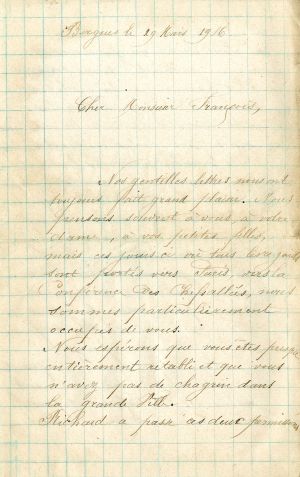 Bergues le 29 Mars 1916
Cher Monsieur François,
Vos gentilles lettres nous ont
toujours fait grand plaisir. Nous
pensons souvent à vous, à votre
dame, à vos petites filles,
mais ces jours-ci où tous les
sont portés vers Paris, vers la
Conférence des Alliés, nous
sommes particulièrement
occupés de vous.
Nous espérons que vous êtes presque
entièrement rétabli et que vous
n'avez pas de chagrin dans
la grande Ville.
Richard a passé ses deux permissions